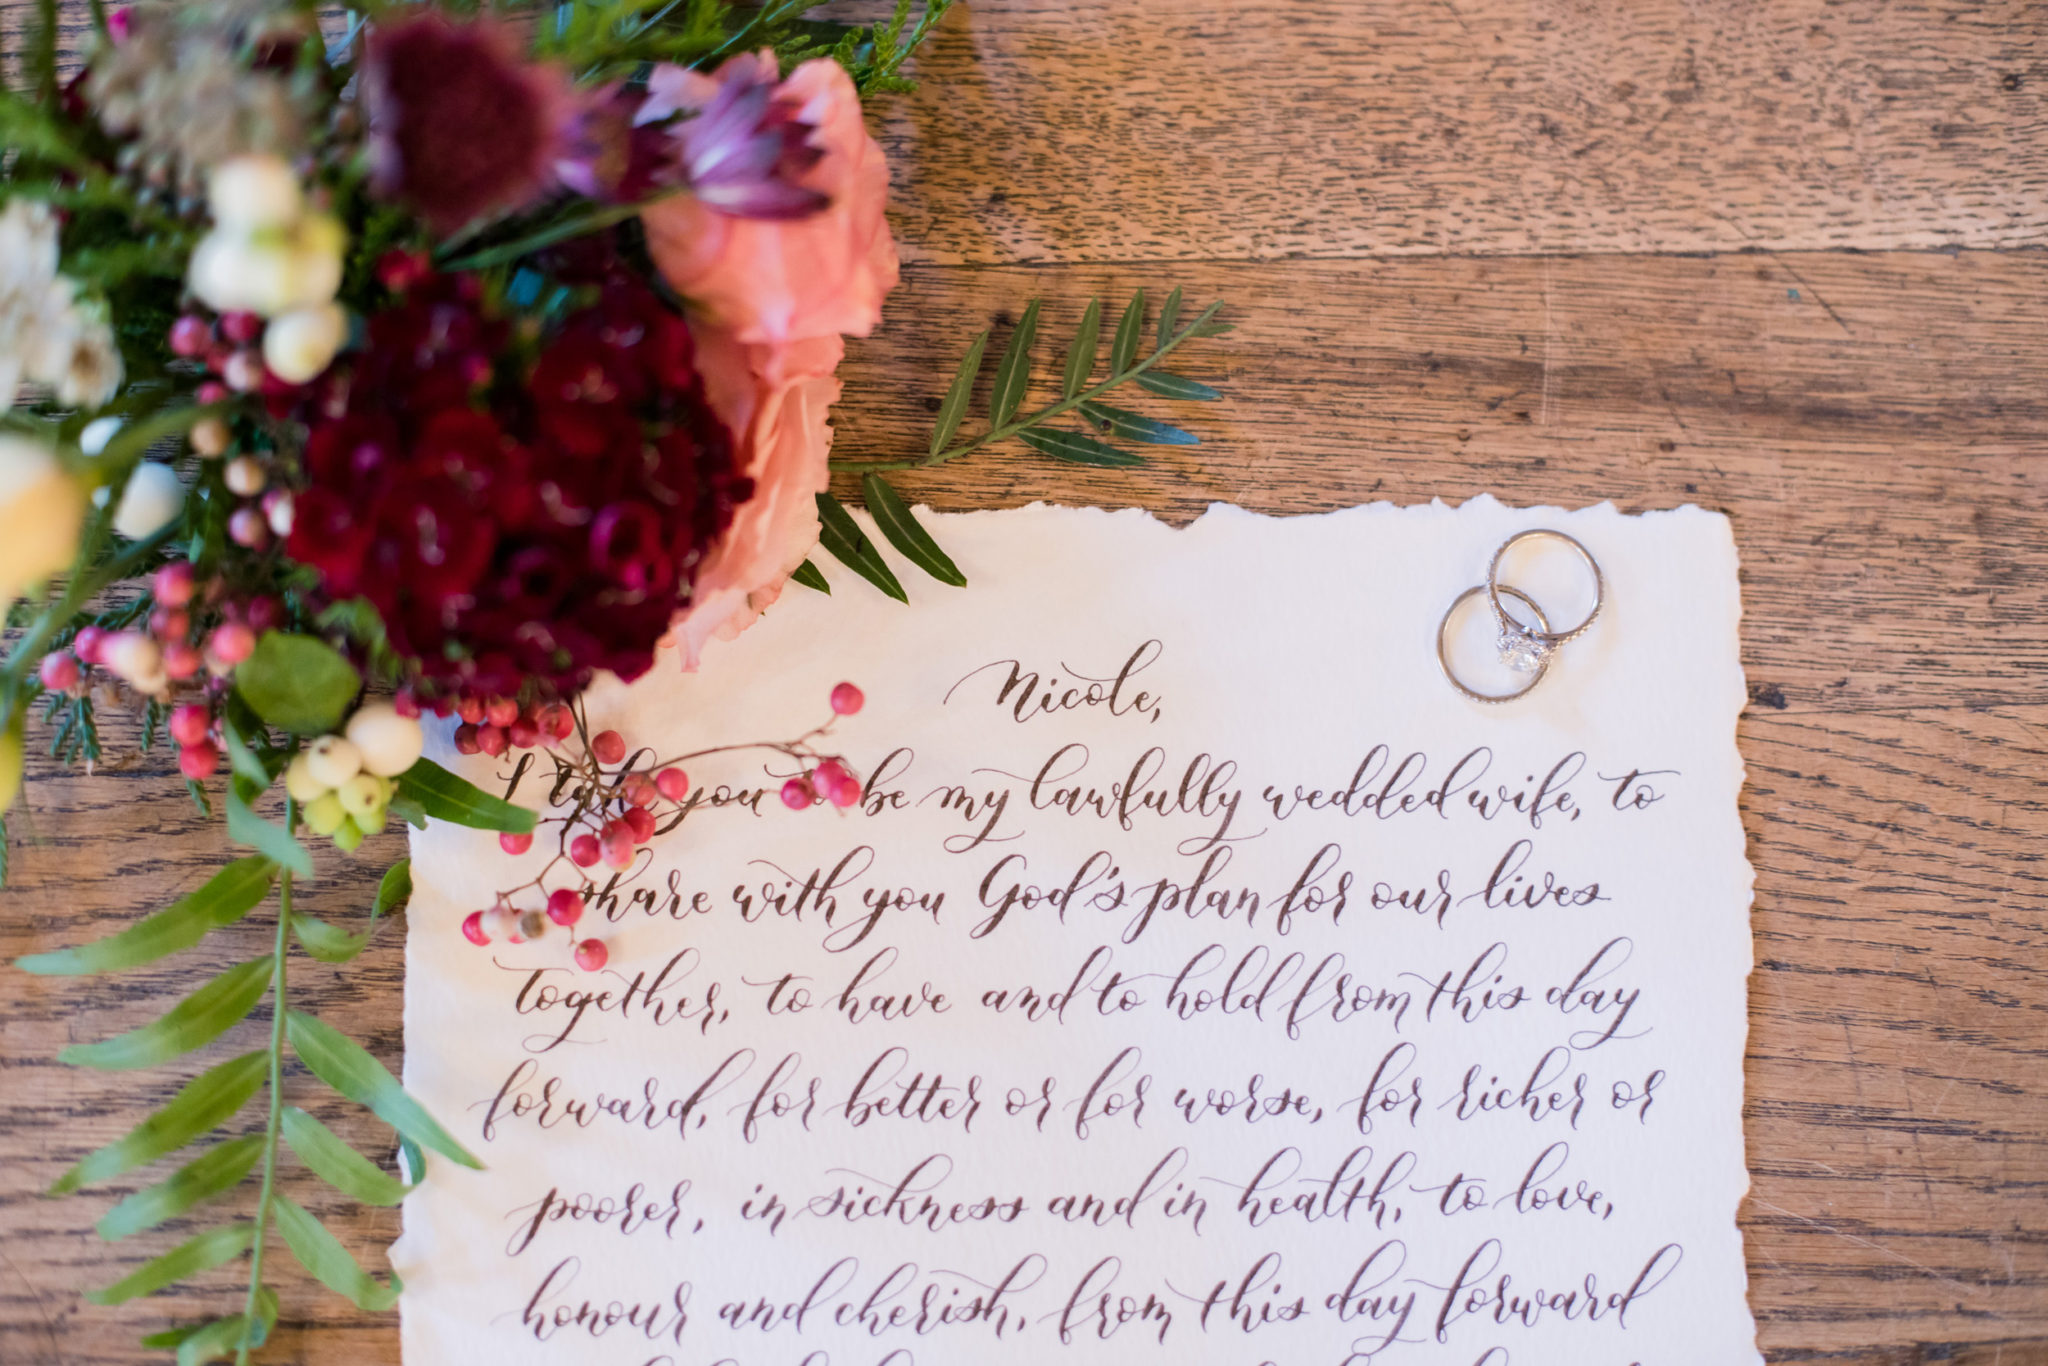 Nicole,
I take you to be my lawfully wedded wife, to
share with you God's plan for our lives
together, to have and to hold from this day
forward, for better or for worse, for richer or
poorer, in sickness and in health, to love,
honour and cherish, from this day forward